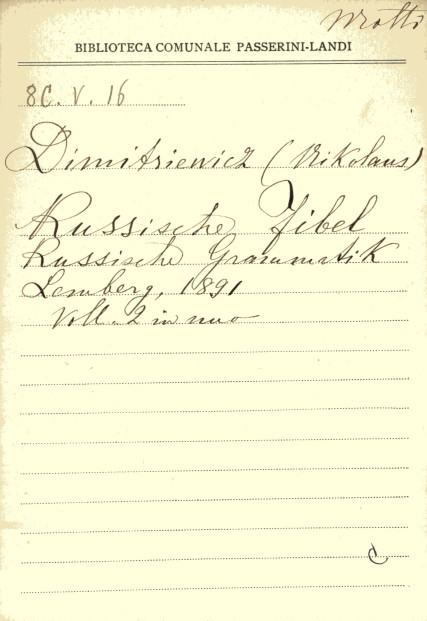 BIBLIOTECA COMUNALE PASSERINI-LANDI
8C. V. 16
Dimitriewicz (Nikolaus)
Russische Fibel
Russische Grammatik
Lemberg, 1891
Voll. 2 in uno
C